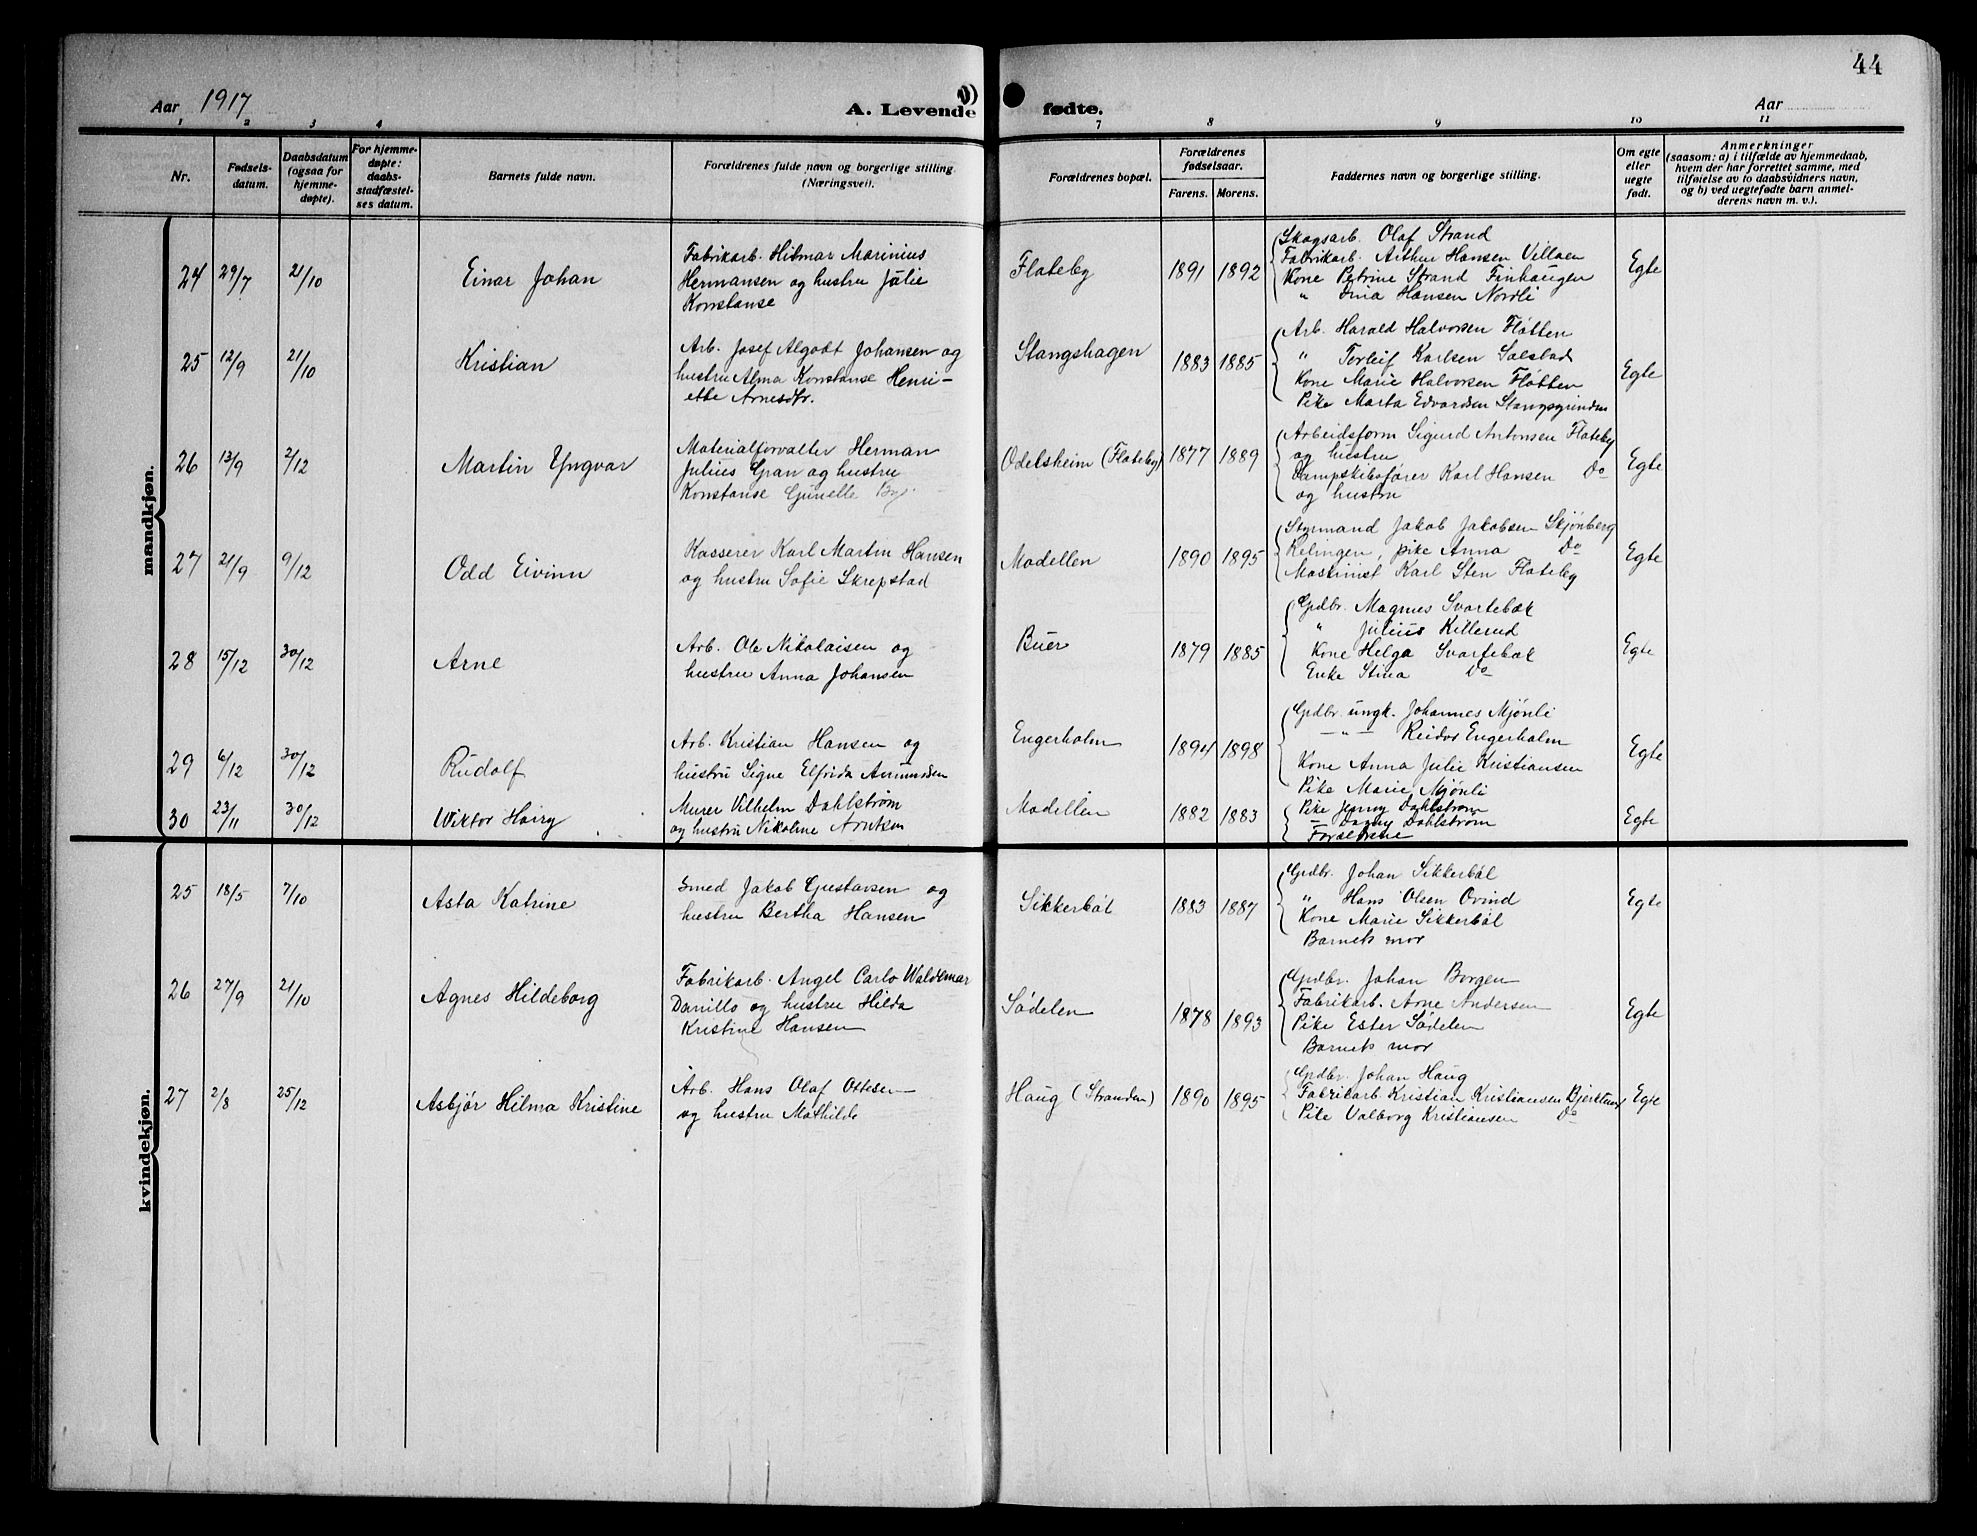 44
Aar 1917
A. Levende fødte.
Aar
1 2 3 4 7 8 9 10 11
Nr.
Fødsels-
datum.
Daabsdatum
(ogsaa for
hjemme-
døpte).
For hjemme-
døpte:
daabs-
stadfæstel-
ses datum.
Barnets fulde navn.
Forældrenes fulde navn og borgerlige stilling
(Næringsvei).
Forældrenes bopæl.
Forældrenes
fødselsaar.
Farens. Morens.
Faddernes navn og borgerlige stilling.
Om egte
eller
uegte
født.
Anmerkninger
(saasom: a) i tilfælde av hjemmedaab,
hvem der har forrettet samme, med
tilføielse av to daabsvidners navn,
og b) ved uegtefødte barn anmel-
derens navn m. v.).
mandkjøn.
24 29/7 21/10 Einar Johan
Fabrikarb. Hilmar Marinius
Hermansen og hustru Julie
Konstanse
Flateby 1891 1892
Skogsarb. Olaf Strand
Fabrikarb. Arthur Hansen Villaen
Kone Petrine Strand Finhaugen
" Hansen Nordli
Egte
25 12/9 21/10 Kristian
Arb. Josef Algodt Johansen og
hustru Alma Konstanse Henri-
ette Arnesdtr.
Stangshagen 1883 1885
Arb. Harald Halvorsen Fløtten
" Torleif Karlsen Solstad
Kone Marie Halvorsen Fløtten
Pike Marta Edvardsen Stangsgrinden
Egte
26 13/9 2/12 Martin Yngvar
Materialforvalter Herman
Julius Gran og hustru
Konstanse Gunelle
Odelsheim (Flateby) 1877 1889
Arbeidsform Sigurd Antonsen Flateby
og hustru
Dampskibsfører Karl Hansen Do
og hustru
Egte
27 21/9 9/12 Odd Eivinn
Kasserer Karl Martin Hansen
og hustru Sofie Skrepstad
Modellen 1890 1895
Styrmand Jakob Jakobsen Skjønberg
Relingen, pike Anna Do
Maskinist Karl Sten Flateby
Egte
28 15/12 30/12 Arne
Arb. Ole Nikolaisen og
hustru Anna Johansen
Buer 1879 1885
Gpdbr. Magnus Svartebæk
" Julius Killerud
Kone Helga Svartebæk
Enke Stina Do
Egte
29 6/12 30/12 Rudolf
Arb. Kristian Hansen og
hustru Signe Elfrida Amundsen
Engerholm 1894 1898
Gpdbr. ungk. Johannes Mjønli
— " — Reidar Engerholm
Kone Anna Julie Kristiansen
Pike Marie Mjønli
Egte
30 23/11 30/12 Viktor Hairy
Murer Vilhelm Dahlstrøm
og hustru Nikoline Arntsen
Modellen 1882 1883
Pike Jenny Dahlstrøm
— Dagny Dahlstrøm
Forældrene
Egte
kvindekjøn.
25 18/5 7/10 Asta Katrine
Smed Jakob Gustavsen og
hustru Bertha Hansen
Sikkerbøl 1883 1887
Gpdbr. Johan Sikkerbøl
" Hans Olsen Ovind
Kone Marie Sikkerbøl
Barnets mor
Egte
26 27/9 21/10 Agnes Hildeborg
Fabrikarb. Angel Carlo Waldemar
Danillo og hustru Hilda
Kristine Hansen
Sødelen 1878 1893
Gpdbr. Johan Borgen
Fabrikarb. Arne Andersen
Pike Ester Sødelen
Barnets mor
Egte
27 2/8 25/12 Asbjør Hilma Kristine
Arb. Hans Olaf Ottesen
og hustru Mathilde
Haug (Stranden) 1890 1895
Gpdbr. Johan Haug
Fabrikarb Kristian Kristiansen
Pike Valborg Kristiansen Do
Egte